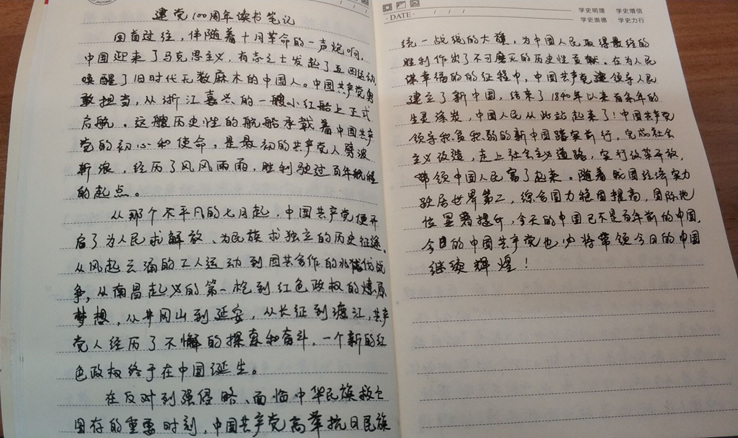 建党100周年读书笔记
回首过往，伴随着十月革命的一声炮响，
中国迎来了马克思主义，有志之士发起了五四运动
唤醒了旧时代无数麻木的中国人。中国共产党勇
敢担当，从浙江嘉兴的一艘小红船上正式
启航。这艘历史性的航船承载着中国共产
党的初心和使命，是最初的共产党人劈波
斩浪，经历了风风雨雨，胜利驶过百年航程
的起点。
从那个不平凡的七月起，中国共产党便开
启了为人民求解放、为民族求独立的历史征程。
从风起云涌的工人运动到国共合作的北伐战
争，从南昌起义的第一枪到红色政权的燎原
梦想，从井冈山到延安，从长征到湘江，共产
党人经历了不懈的探索和奋斗，一个新的红
色政权终于在中国诞生。
在反对列强侵略、面临中华民族救亡
图存的重要时刻，中国共产党高举抗日民族
DATE
学史明理 学史增信
学史崇德 学史力行
统一战线的大旗，为中国人民取得最终的
胜利作出了不可磨灭的历史性贡献，在为人民
谋幸福的的征程中，中国共产党带领人民
建立了新中国，结束了1840年以来百余年的
生灵涂炭，中国人民从此站起来了！中国共产党
领导我贫我弱的新中国踏实前行，完成社会
主义改造，走上社会主义道路，实行改革开放，
带领中国人民富了起来。随着我国经济实力
跃居世界第二，综合国力稳固提高，国际地
位显著提升，今天的中国已不是百年前的中国，
今日的中国共产党也必将带领今日的中国
继续辉煌！